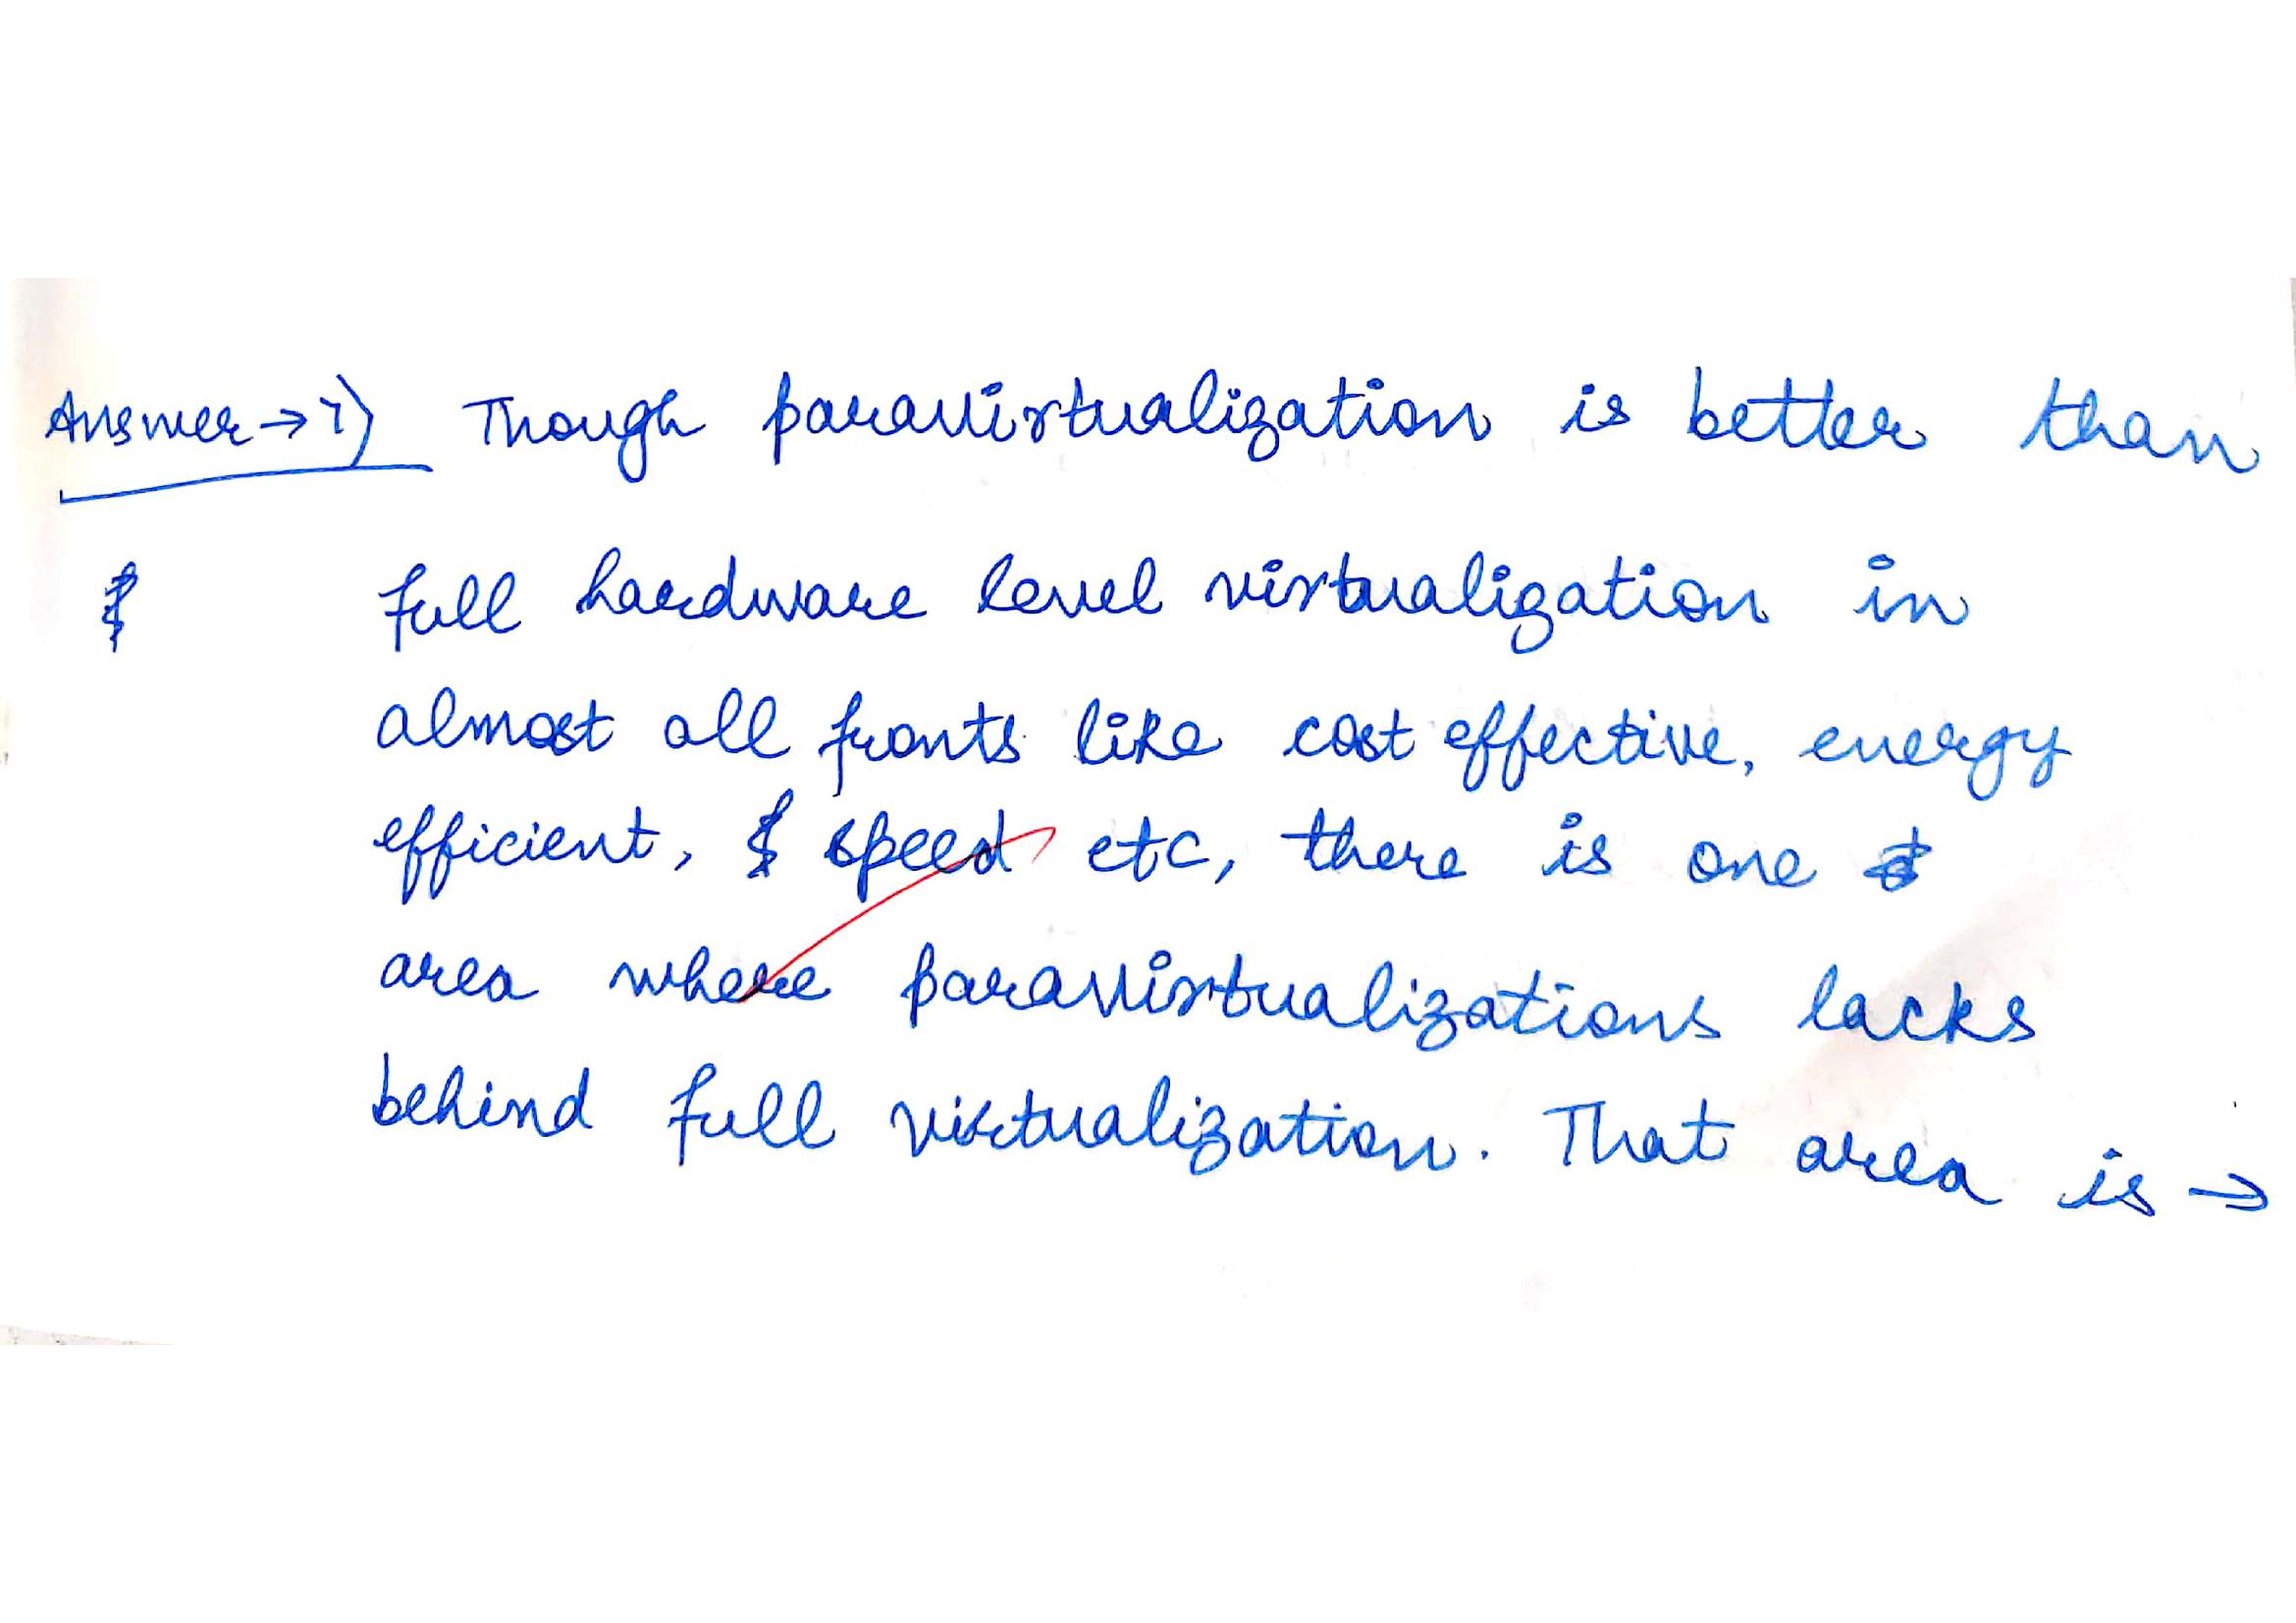 Answer → 1) Though paravirtualization is better than
full hardware level virtualization in
almost all fronts like cost effective, energy
efficient, speed etc, there is one
area where paravirtualizations lacks
behind full virtualization. That area is →